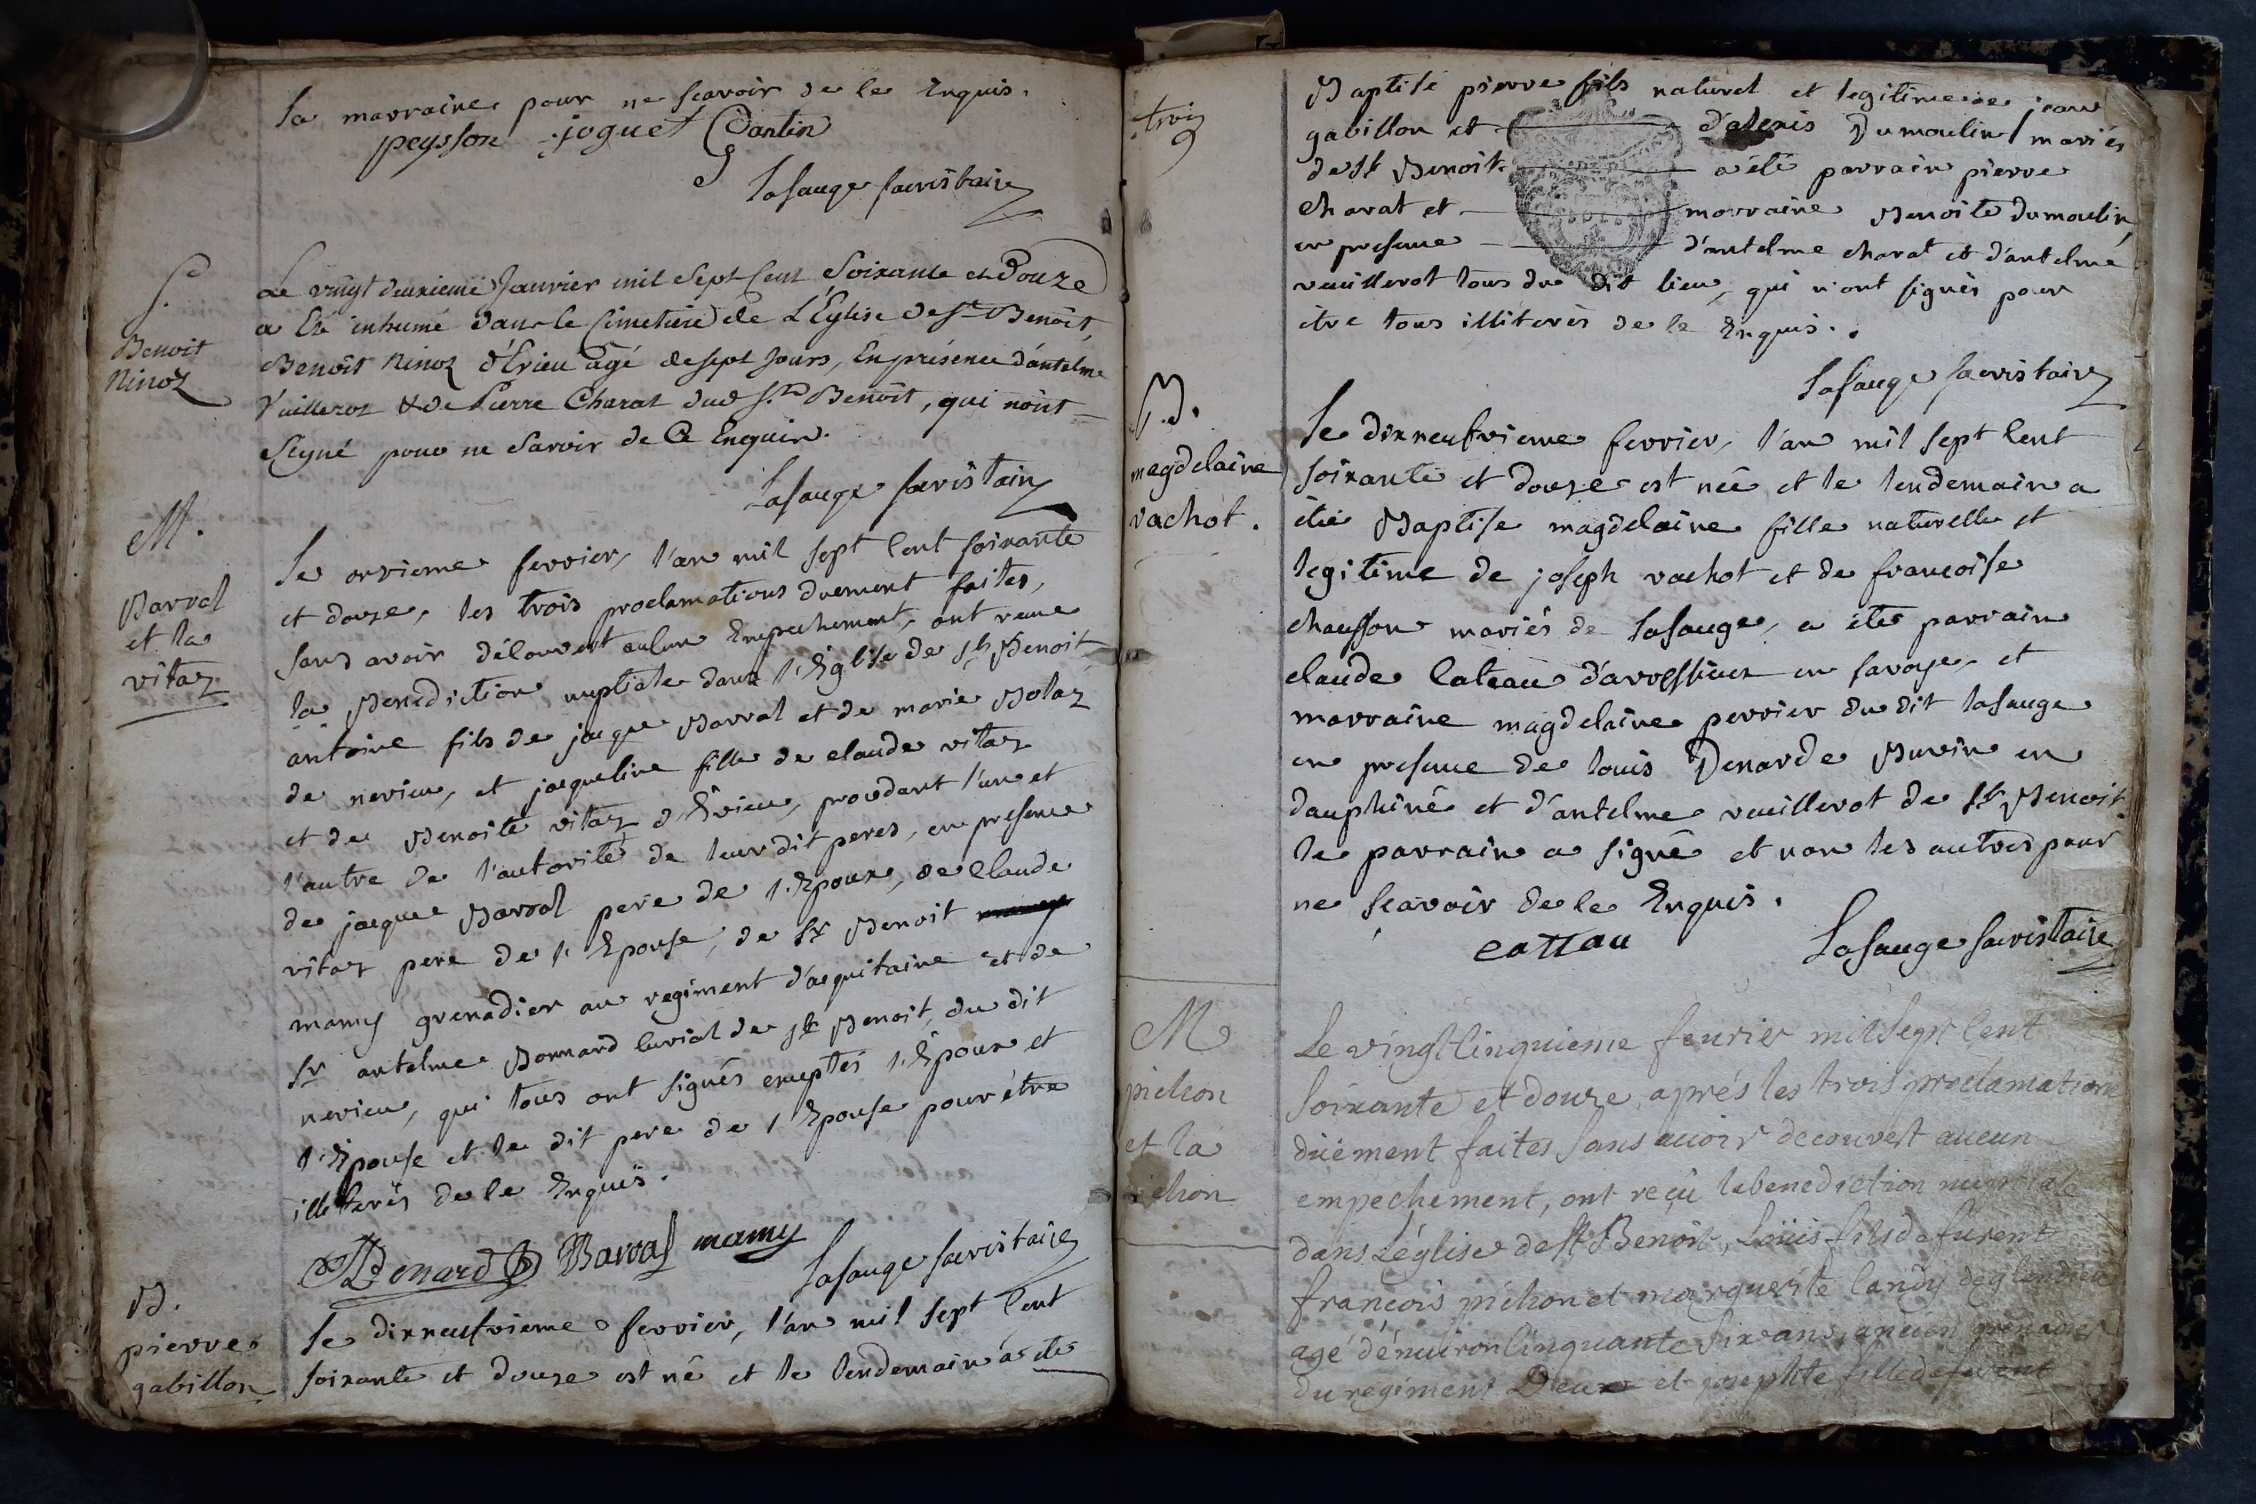 la marraine pour ne scavoir de ce Enquis.
peysson joguet Dantin
Lasauge sacristain
S.
Benoit
Ninoz
Le vingt deuxieme Janvier mil sept Cent Soixante et Douze
a Eté inhumé dans le Cimetiere de L'Eglise de St Benoit,
Benoit Ninoz d'Evieu âgé de sept Jours, En présence d'antelme
Vuillerot & de Pierre Charat dud St Benoit, qui n'ont
Signé pour ne Savoir de Ce Enquis.
Lasauge sacristain
M.
Barral
et la
vitaz
Le onzieme fevrier, l'an mil sept Cent soixante
et douze, les trois proclamations duement faites,
sans avoir découvert aucun Empechement, ont reçue
la Benediction nuptiale dans l'Eglise de St Benoit
antoine fils de jaque Barral et de marie Bolaz
de nevieu, et jaqueline fille de claude vitaz
et de Benoite vitaz d'Evieu, procedant l'un et
l'autre de l'autorité de leur dit peres, en presence
de jaque Barral pere de l'Epoux, de Claude
vitaz pere de l'Epouse, de Sr Benoit
mamy grenadier au regiment d'aquitaine et de
Sr antelme Bonnard lurial de St Benoit, du dit
nevieu, qui tous ont signés exceptés l'Epoux et
l'Epouse et le dit pere de l'Epouse pour être
illiterés de ce Enquis.
Benard Barral mamy
Lasauge sacristain
B.
pierre
gabillon
Le dixneufvieme fevrier, l'an mil sept Cent
soixante et douze est né et le lendemain a été
trois
Baptisé pierre fils naturel et legitime de jean
gabillon et d'alexis Dumoulin mariés
de St Benoit a été parrain pierre
charat et marraine Benoite dumoulin,
en presence d'antelme charat et d'antelme
vuillerot tous du dit lieu, qui n'ont signés pour
être tous illiterés de ce Enquis.
Lasauge sacristain
B.
magdelaine
vachot.
Le dixneufvieme fevrier, l'an mil sept Cent
soixante et douze est née et le lendemain a
été Baptisé magdelaine fille naturelle et
legitime de joseph vachot et de francoise
chausson mariés de Lasauge, a été parrain
claude Cateau en savoye, et
marraine magdelaine perrier du dit lasauge
en presence de louis Denarde Buvin en
dauphiné et d'antelme vuillerot de St Benoit.
le parrain a signé et non les autres pour
ne scavoir de ce Enquis.
cattau
Lasauge sacristain
M
pichon
et la
pichon
Le vingt Cinquieme feurier mil sept Cent
soixante et douze, aprés les trois proclamations
düement faites sans auoir decouvert aucun
empechement, ont reçü la benediction nuptiale
dans L'église de St Benoit, Loüis fils de furent
françois pichon et marguerite landy de glandieu
agé d'énuiron Cinquante six ans, ancien grenadier
du regiment Deux et josephte fille de furent